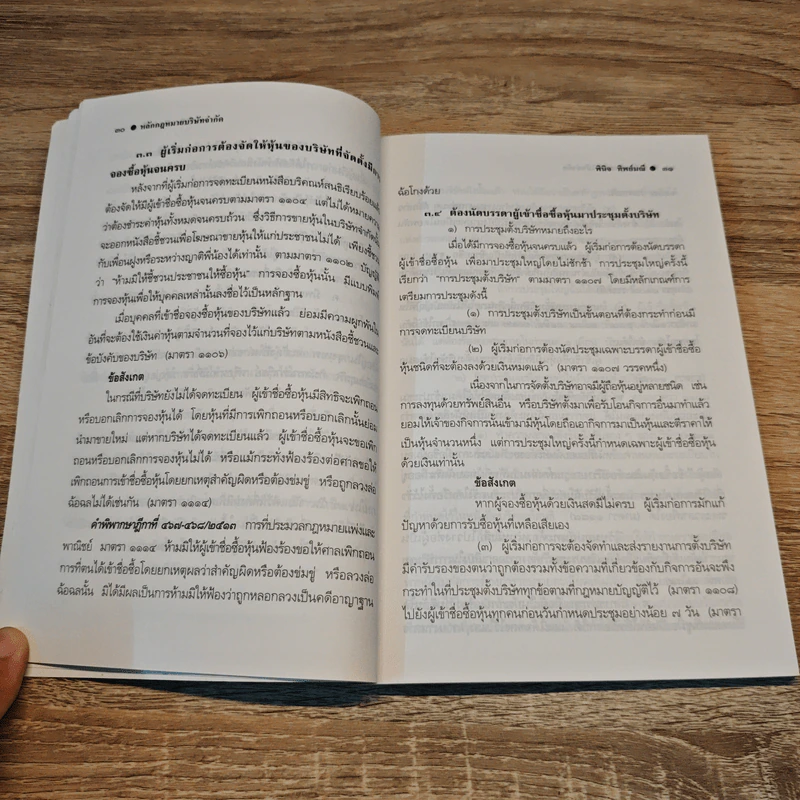 ๓๐ ● หลักกฎหมายบริษัทจำกัด
๓.๓ ผู้เริ่มก่อการต้องจัดให้หุ้นของบริษัทที่จัดตั้งมี
จองซื้อหุ้นจนครบ
หลังจากที่ผู้เริ่มก่อการจดทะเบียนหนังสือบริคณห์สนธิเรียบร้อย
ต้องจัดให้มีผู้เข้าชื่อซื้อหุ้นจนครบตามมาตรา ๑๑๐๔ แต่ไม่ได้หมายความ
ว่าต้องชำระค่าหุ้นทั้งหมดจนครบถ้วน ซึ่งวิธีการขายหุ้นในบริษัทจำกัด
จะออกหนังสือชี้ชวนเพื่อโฆษณาขายหุ้นให้แก่ประชาชนไม่ได้ เพียงชี้ชวน
กับเพื่อนฝูงหรือระหว่างญาติพี่น้องได้เท่านั้น ตามมาตรา ๑๑๐๒ บัญญัติ
ว่า “ห้ามมิให้ชี้ชวนประชาชนให้ซื้อหุ้น” การจองซื้อหุ้นนั้น มีแบบพิมพ์
การจองหุ้นเพื่อให้บุคคลเหล่านั้นลงชื่อไว้เป็นหลักฐาน
เมื่อบุคคลที่เข้าชื่อจองซื้อหุ้นของบริษัทแล้ว ย่อมมีความผูกพันใน
อันที่จะต้องใช้เงินค่าหุ้นตามจำนวนที่จองไว้แก่บริษัทตามหนังสือชี้ชวนและ
ข้อบังคับของบริษัท (มาตรา ๑๑๐๖)
ข้อสังเกต
ในกรณีที่บริษัทยังไม่ได้จดทะเบียน ผู้เข้าชื่อซื้อหุ้นมีสิทธิจะเพิกถอน
หรือบอกเลิกการจองหุ้นได้ โดยหุ้นที่มีการเพิกถอนหรือบอกเลิกนั้นย่อม
นำมาขายใหม่ แต่หากบริษัทได้จดทะเบียนแล้ว ผู้เข้าชื่อซื้อหุ้นจะขอเพิก
ถอนหรือบอกเลิกการจองหุ้นไม่ได้ หรือแม้กระทั่งฟ้องร้องต่อศาลขอให้
เพิกถอนการเข้าชื่อซื้อหุ้นโดยยกเหตุสำคัญผิดหรือต้องข่มขู่ หรือถูกลวงล่อ
ฉ้อฉลไม่ได้เช่นกัน (มาตรา ๑๑๑๔)
คำพิพากษาฎีกาที่ ๔๖๗-๔๖๘/๒๕๑๓ การที่ประมวลกฎหมายแพ่งและ
พาณิชย์ มาตรา ๑๑๑๔ ห้ามมิให้ผู้เข้าชื่อซื้อหุ้นฟ้องร้องขอให้ศาลเพิกถอน
การที่ตนได้เข้าชื่อซื้อโดยยกเหตุผลว่าสำคัญผิดหรือต้องข่มขู่ หรือลวงล่อ
ฉ้อฉลนั้น มิได้มีผลเป็นการห้ามมิให้ฟ้องว่าถูกหลอกลวงเป็นคดีอาญาฐาน
พินิจ ทิพย์มณี ● ๓๑
ฉ้อโกงด้วย
๓.๔ ต้องนัดบรรดาผู้เข้าชื่อซื้อหุ้นมาประชุมตั้งบริษัท
๑) การประชุมตั้งบริษัทหมายถึงอะไร
เมื่อได้มีการจองซื้อหุ้นจนครบแล้ว ผู้เริ่มก่อการต้องนัดบรรดา
ผู้เข้าชื่อซื้อหุ้น เพื่อมาประชุมใหญ่โดยไม่ชักช้า การประชุมใหญ่ครั้งนี้
เรียกว่า “การประชุมตั้งบริษัท” ตามมาตรา ๑๑๐๗ โดยมีหลักเกณฑ์การ
เตรียมการประชุมดังนี้
(๑) การประชุมตั้งบริษัทเป็นขั้นตอนที่ต้องกระทำก่อนมี
การจดทะเบียนบริษัท
(๒) ผู้เริ่มก่อการต้องนัดประชุมเฉพาะบรรดาผู้เข้าชื่อซื้อ
หุ้นชนิดที่จะต้องลงด้วยเงินหมดแล้ว (มาตรา ๑๑๐๗ วรรคหนึ่ง)
เนื่องจากในการจัดตั้งบริษัทอาจมีผู้ถือหุ้นอยู่หลายชนิด เช่น
การลงทุนด้วยทรัพย์สินอื่น หรือบริษัทตั้งมาเพื่อรับโอนกิจการอื่นมาทำแล้ว
ยอมให้เจ้าของกิจการนั้นเข้ามามีหุ้นโดยถือเอากิจการมาเป็นหุ้นและตีราคาให้
เป็นหุ้นจำนวนหนึ่ง แต่การประชุมใหญ่ครั้งนี้กำหนดเฉพาะผู้เข้าชื่อซื้อหุ้น
ด้วยเงินเท่านั้น
ข้อสังเกต
หากผู้จองซื้อหุ้นด้วยเงินสดมีไม่ครบ ผู้เริ่มก่อการมักแก้
ปัญหาด้วยการรับซื้อหุ้นที่เหลือเสียเอง
(๓) ผู้เริ่มก่อการจะต้องจัดทำและส่งรายงานการตั้งบริษัท
มีคำรับรองของตนว่าถูกต้องรวมทั้งข้อความที่เกี่ยวข้องกับกิจการอันจะพึง
กระทำในที่ประชุมตั้งบริษัททุกข้อตามที่กฎหมายบัญญัติไว้ (มาตรา ๑๑๐๘)
ไปยังผู้เข้าชื่อซื้อหุ้นทุกคนก่อนวันกำหนดประชุมอย่างน้อย ๗ วัน (มาตรา